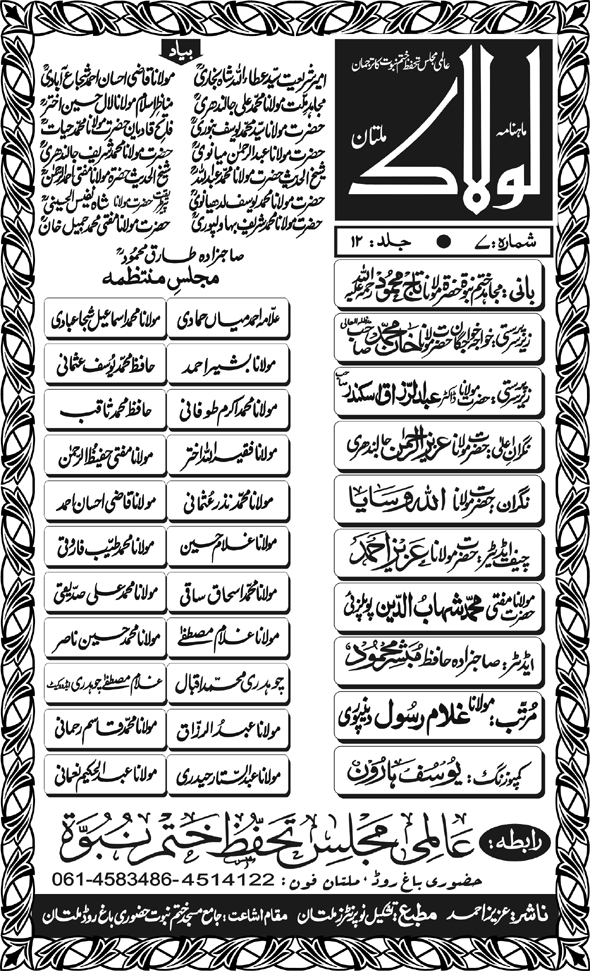 عالمی مجلس تحفظ ختم نبوت کا ترجمان
ماہنامہ
لولاک
ملتان
شمارہ: ۷ ● جلد: ۱۲
بانی: مجاہد ختم نبوۃ حضرۃ مولانا تاج محمود رحمۃ اللہ علیہ
زیر سرپرستی: خواجہ خواجگان حضرت مولانا خان محمد صاحب مدظلہ العالی
زیر سرپرستی: حضرت مولانا ڈاکٹر عبدالرزاق اسکندر صاحب
نگران اعلیٰ: حضرت مولانا عزیز الرحمن جالندھری
نگران: حضرت مولانا اللہ وسایا
چیف ایڈیٹر: حضرت مولانا عزیز احمد
حضرت مولانا مفتی محمد شہاب الدین پوپلزئی
ایڈیٹر: صاحبزادہ حافظ مبشر محمود
مرتب: مولانا غلام رسول دینپوری
کمپوزنگ: یوسف ہارون
بیاد
امیر شریعت سید عطاء اللہ شاہ بخاریؒ
مولانا قاضی احسان احمد شجاع آبادیؒ
مجاہد ملت مولانا محمد علی جالندھریؒ
مناظر اسلام مولانا لال حسین اخترؒ
حضرت مولانا سید محمد یوسف بنوریؒ
فاتح قادیان حضرت مولانا محمد حیاتؒ
حضرت مولانا عبدالرحمن میانویؒ
حضرت مولانا محمد شریف جالندھریؒ
شیخ الحدیث حضرت مولانا محمد عبداللہؒ
شیخ الحدیث حضرۃ مولانا مفتی احمد الرحمنؒ
حضرت مولانا محمد یوسف لدھیانویؒ
حضرت مولانا شاہ نفیس الحسینیؒ
حضرت مولانا محمد شریف بہاولپوریؒ
حضرت مولانا مفتی محمد جمیل خانؒ
صاحبزادہ طارق محمودؒ
مجلس منتظمہ
علامہ احمد میاں حمادی
مولانا محمد اسماعیل شجاعبادی
مولانا بشیر احمد
حافظ محمد یوسف عثمانی
مولانا محمد اکرم طوفانی
حافظ محمد ثاقب
مولانا فقیہ اللہ اختر
مولانا مفتی حفیظ الرحمن
مولانا محمد نذر عثمانی
مولانا قاضی احسان احمد
مولانا غلام حسین
مولانا محمد طیب فاروقی
مولانا محمد اسحاق ساقی
مولانا محمد علی صدیقی
مولانا غلام مصطفےٰ
مولانا محمد حسین ناصر
چوہدری محمد اقبال
غلام مصطفےٰ چوہدری ایڈووکیٹ
مولانا عبدالرزاق
مولانا محمد قاسم رحمانی
مولانا عبدالستار حیدری
مولانا عبدالحکیم نعمانی
رابطہ: عالمی مجلس تحفظ ختم نبوۃ
حضوری باغ روڈ، ملتان فون: 061-4583486-4514122
ناشر: عزیز احمد مطبع: تشکیل نو پرنٹرز ملتان مقام اشاعت: جامع مسجد ختم نبوت حضوری باغ روڈ ملتان